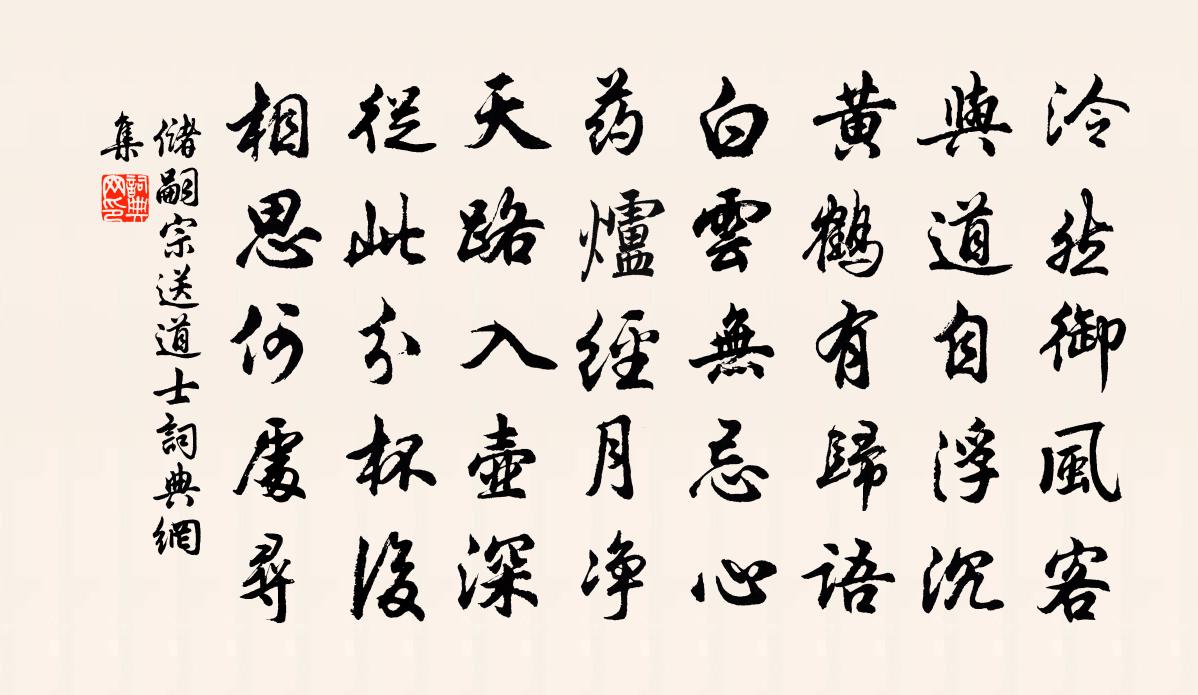 泠然御風客
與道自浮沉
黃鶴有歸語
白雲無忌心
药爐經月净
天路入壺深
從此分杯後
相思何處尋
儲嗣宗送道士詞典網
集
詞典網印